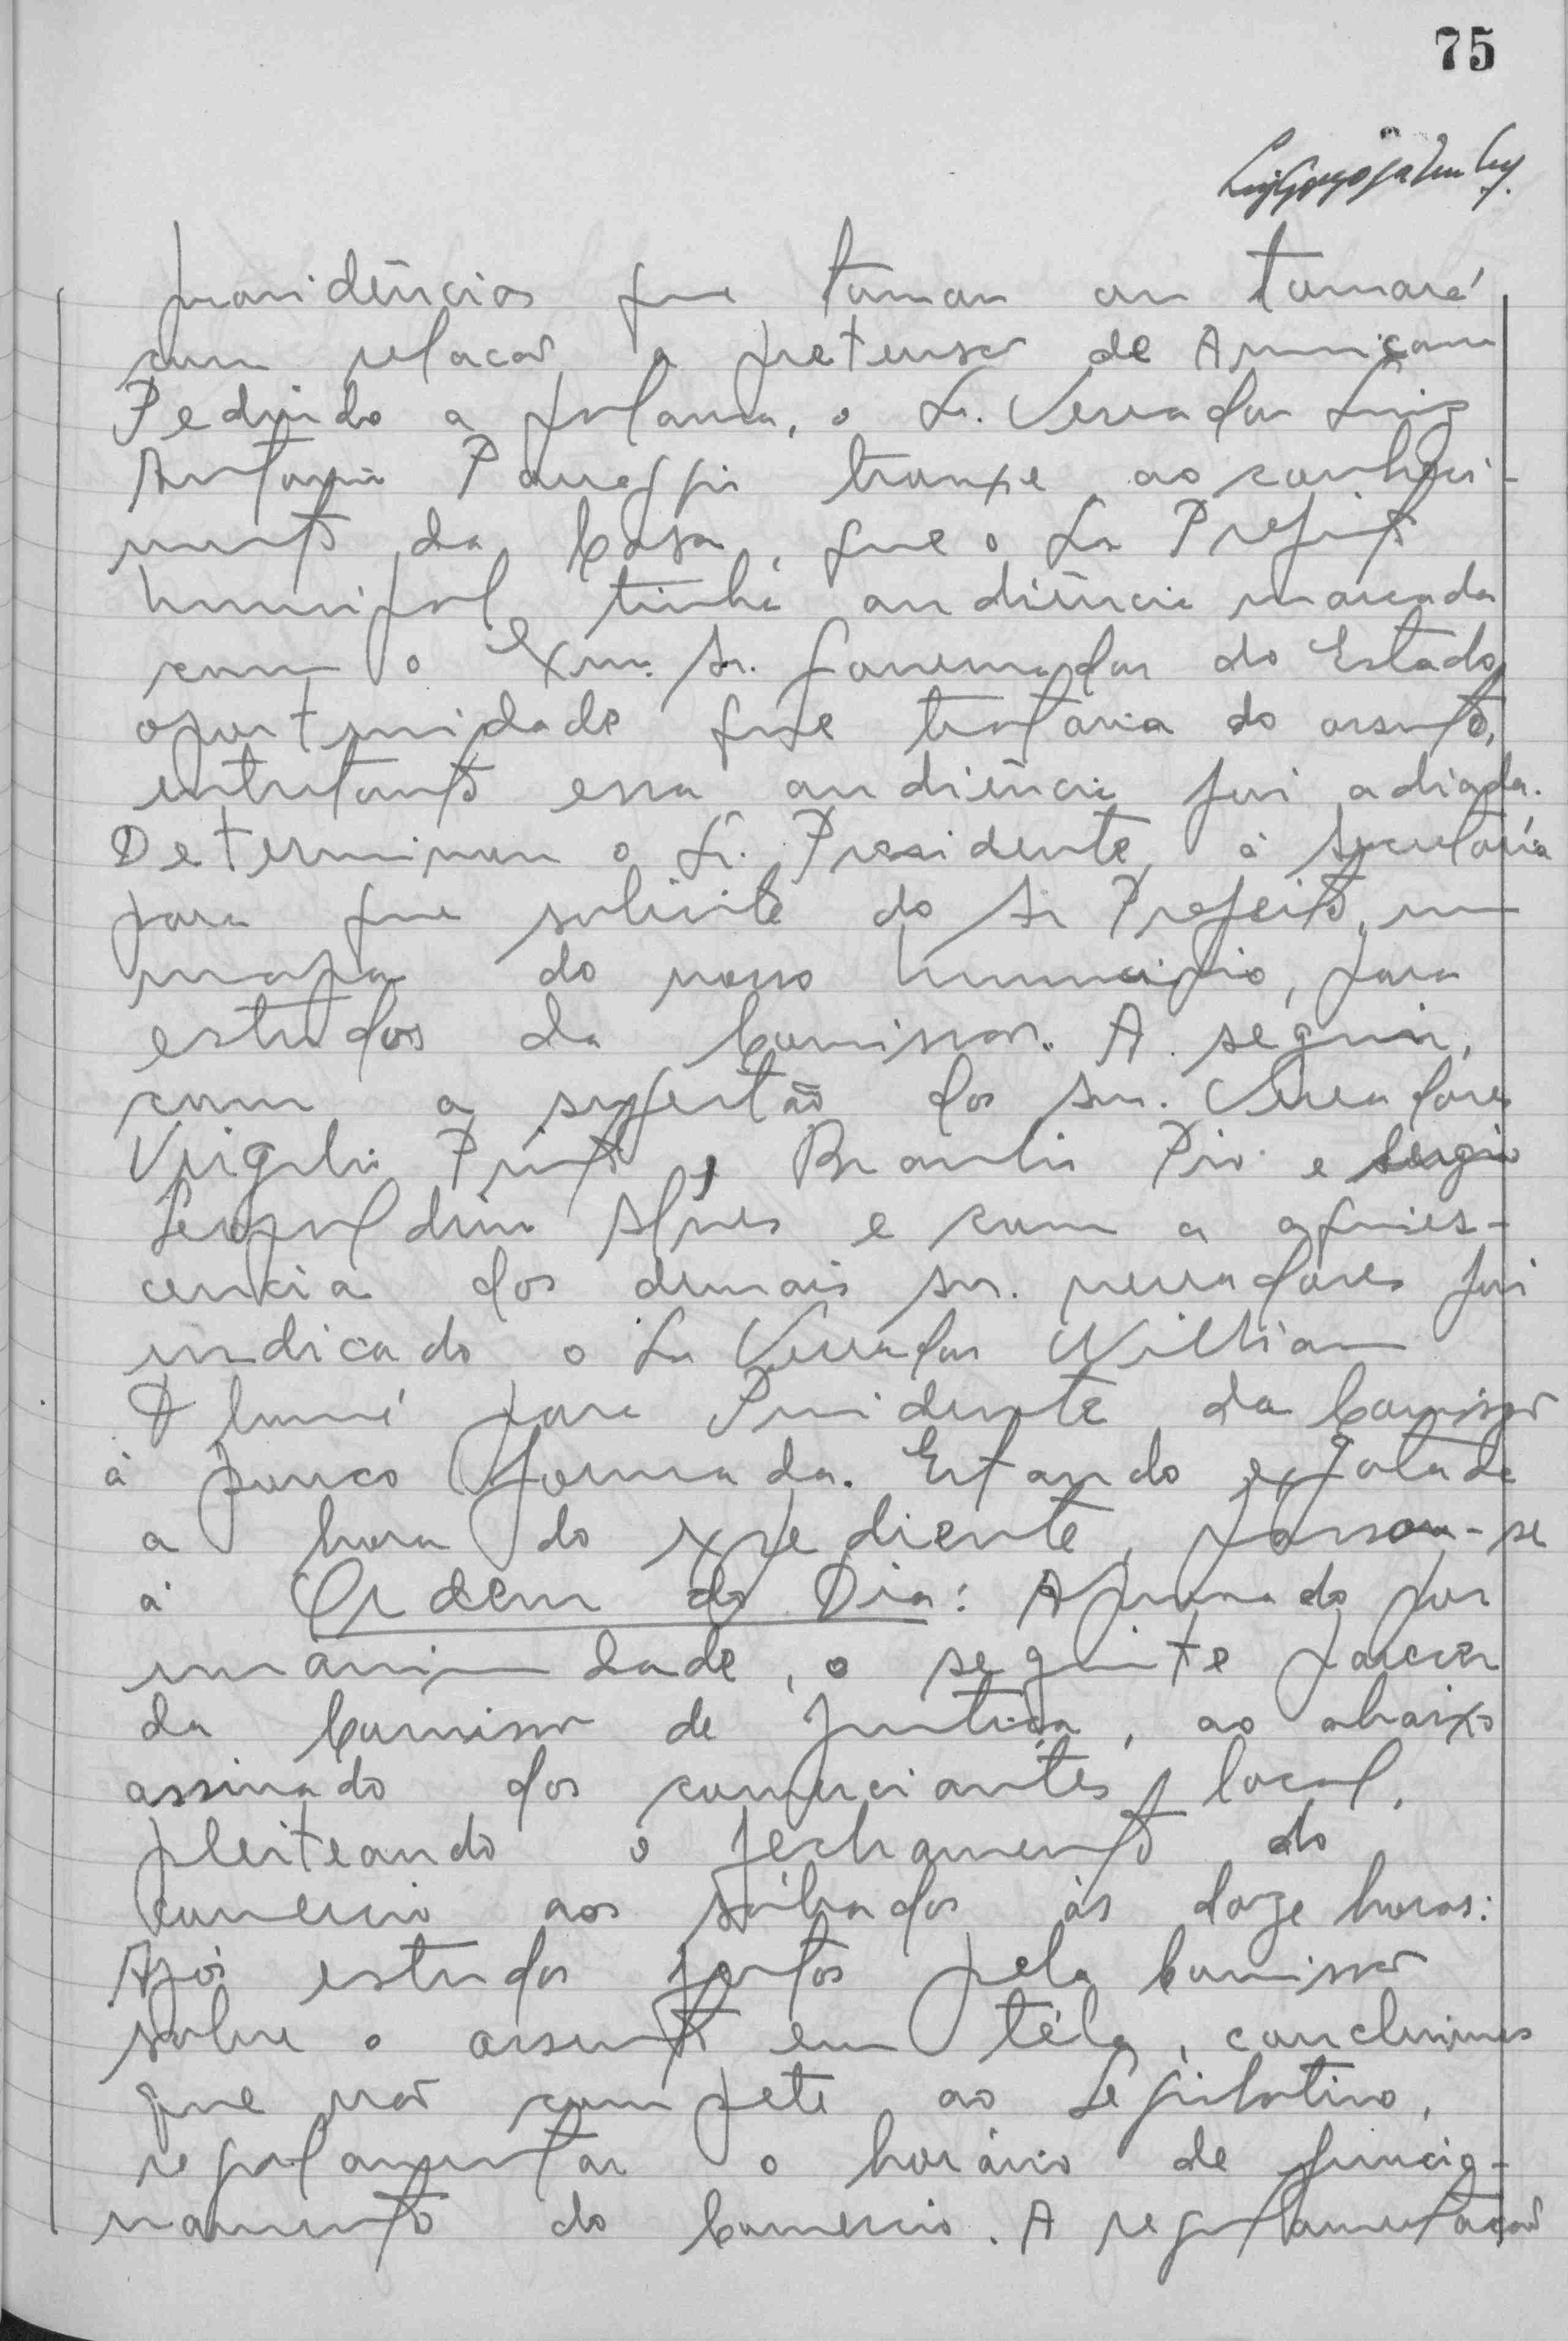 75
providências que tomou ou tomará
com relacão a pretensão de Americana
Pedindo a palavra, o Sr. Vereador Luiz
Antonio trouxe ao conheci-
mento da Casa, que o Sr Prefeito
Municipal tinha audiência marcada
com o Exmo. Sr. Governador do Estado,
oportunidade que trataria do assunto,
entretanto essa audiência foi adiada.
Determinou o Sr. Presidente, à Secretaria
para que solicite do Sr Prefeito, um
mapa do nosso Municipio, para
estudos da Comissão. A seguir,
com a sugestão dos Srs. Vereadores
Virgilio Pinto, Braulio Pio e Sérgio
Leopoldino Alves e com a aquies-
cencia dos demais srs. vereadores foi
indicado o Sr Vereador Willian
para Presidente da Comissão
à pouco formada. Estando esgotada
a hora do expediente, passou-se
à Ordem do Dia: Aprovado por
unanimidade, o seguinte parecer
da Comissão de Justiça, ao abaixo
assinado dos comerciantes local,
pleiteando o fechamento do
comercio aos sábados às doze horas:
Após estudos feitos pela Comissão
sobre o assunto em téla, concluimos
que não compete ao Legislativo,
regulamentar o horário de funcio-
namento do Comercio. A regulamentação